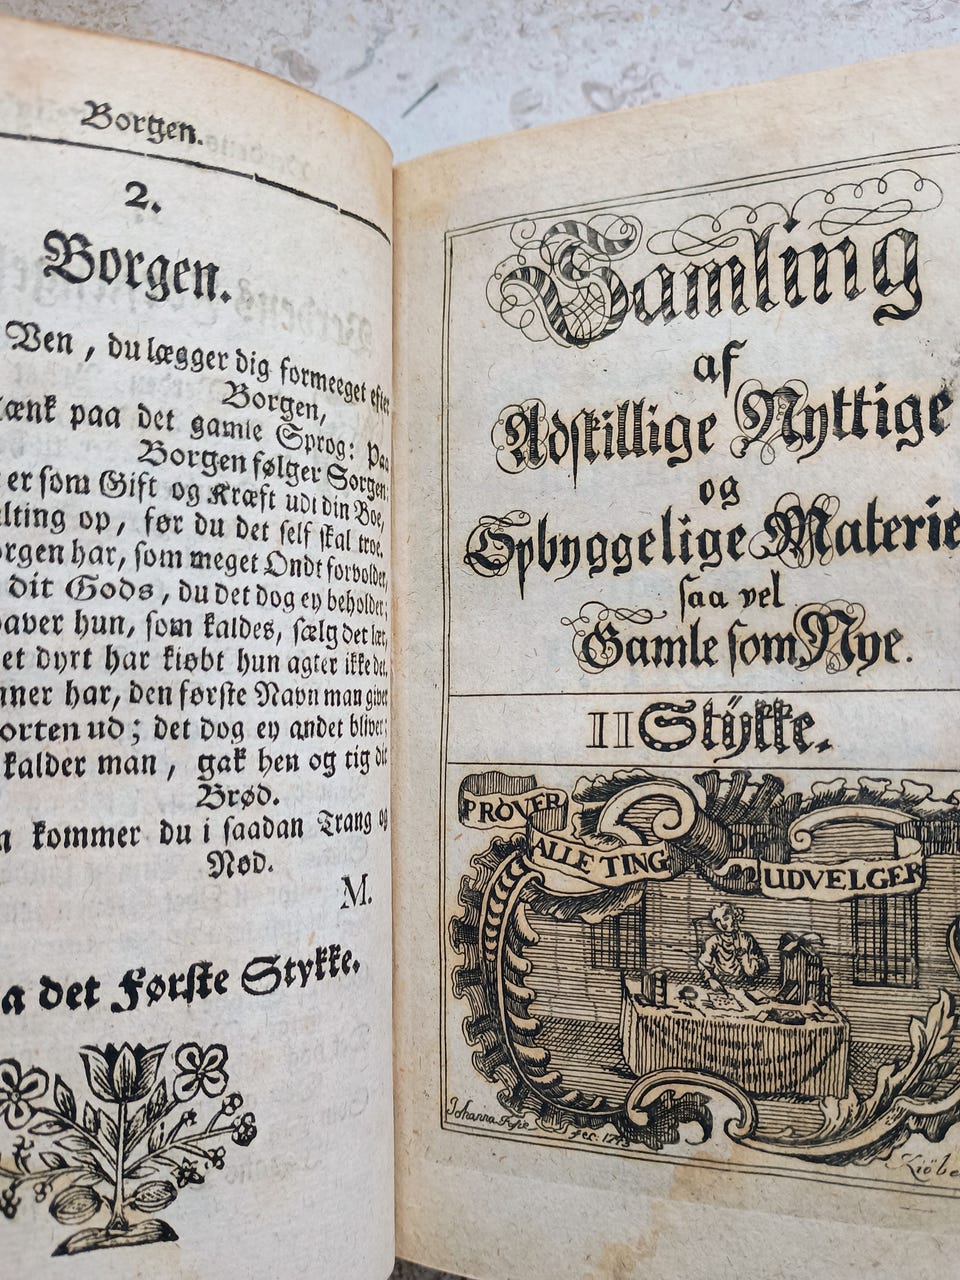 Borgen.
2.
Borgen.
Ven, du lægger dig formeeget efter
Borgen,
tænk paa det gamle Sprog: Paa
Borgen følger Sorgen;
er som Gift og Kræft udi din Boe,
alting op, før du det self skal troe.
orgen har, som meget Ondt forvolder,
dit Gods, du det dog ey beholder;
aver hun, som kaldes, sælg det let,
et dyrt har kiøbt hun agter ikke det.
nner har, den første Navn man giver
orten ud; det dog ey andet bliver:
kalder man, gak hen og tig dit
Brød.
n kommer du i saadan Trang og
Nød.
M.
a det Første Stykke.
Samling
af
Adskillige Nyttige
og
Opbyggelige Materie
saa vel
Gamle som Nye.
II Stÿkke.
PRØVER
ALLE TING
UDVELGER
Johanna Fosie
fec. 174
Kiöbe